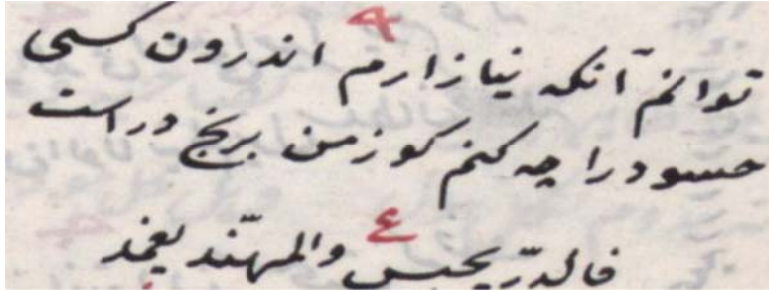 ۹
توانم آنکه نیازارم اندرون کسی
حسود را چه کنم کو زمن برنج دراست
ع
فالدرّ یحبس والمهنّد یغمد